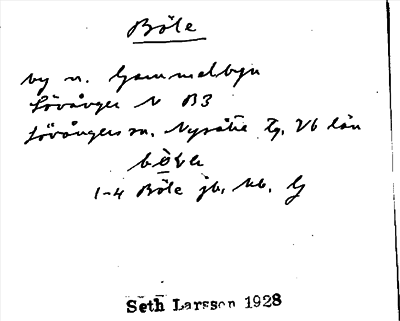 Böle
by n. Gammelbyn
Lövånger N B3
Lövångers sn. Nysätra tg. Vb län
1-4 Böle jb, kb, G
Seth Larsson 1928